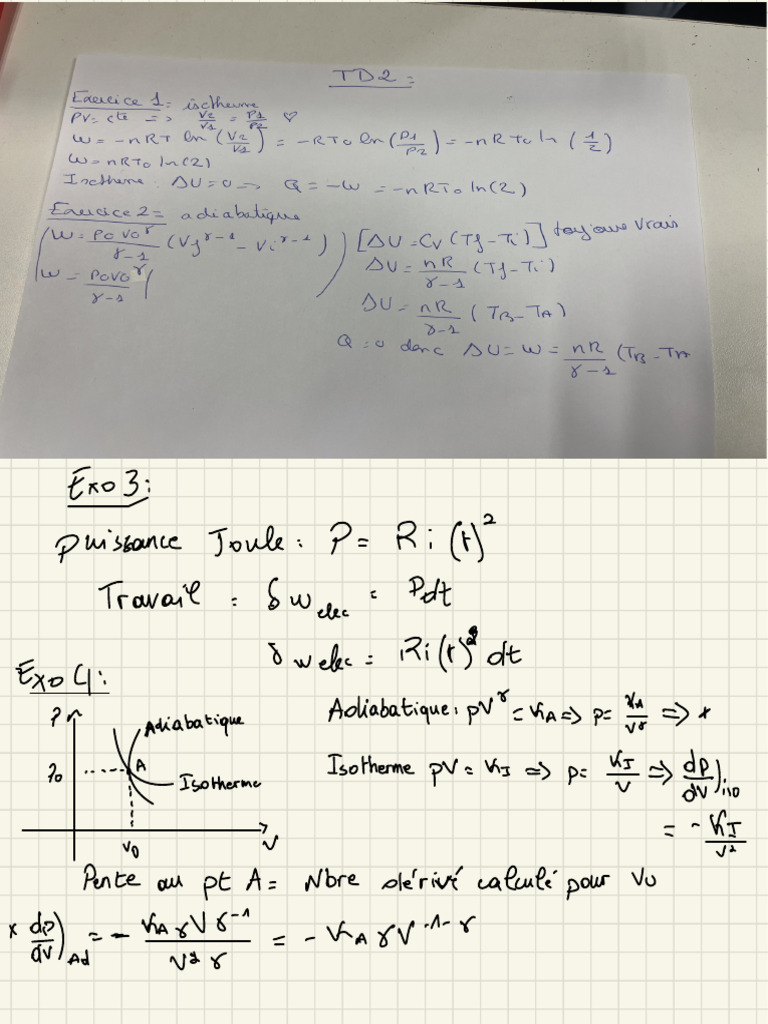 TD2 :
Exercice 1 : isotherme
PV = cte => V2/V1 = P1/P2 ♡
W = -nRT ln (V2/V1) = -RT0 ln (P1/P2) = -nRT0 ln (1/2)
W = nRT0 ln(2)
Isotherme : ΔU = 0 => Q = -W = -nRT0 ln(2)
Exercice 2 = adiabatique
( W = P0V0^γ/(γ-1) (Vf^γ-1 - Vi^γ-1) ) [ΔU = Cv (Tf-Ti)] toujours vrais
( W = P0V0^γ/(γ-1) (
ΔU = nR/(γ-1) (Tf-Ti)
ΔU = nR/(γ-1) (TB-TA)
Q = 0 donc ΔU = W = nR/(γ-1) (TB-TA
Exo 3 :
Puissance Joule : P = Ri(t)^2
Travail : δw elec = Pdt
δw elec = Ri(t)^2 dt
Exo 4 :
P
Adiabatique
P0
A
Isotherme
V0
V
Adiabatique : pV^γ = KA => p = KA/V^γ => *
Isotherme pV = KI => p = KI/V => dp/dV)iso
= -KI/V²
Pente au pt A = Nbre dérivé calculé pour V0
* dp/dV)Ad = - KA γ V^γ-1/V^2γ = - KA γ V^-1-γ